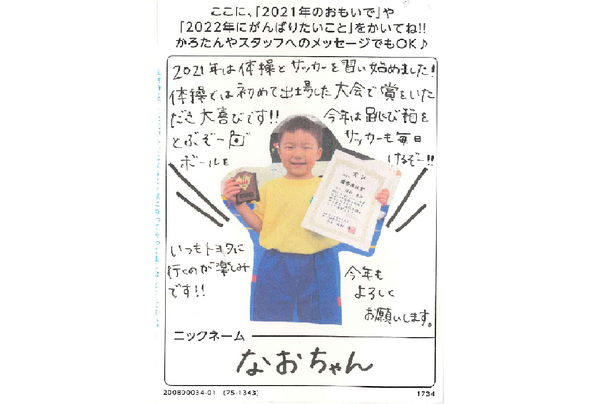 ここに、「2021年のおもいで」や
「2022年にがんばりたいこと」をかいてね!!
かろたんやスタッフへのメッセージでもOK♪
2021年は体操とサッカーを習い始めました!
体操では初めて出場した大会で賞をいた
だき大喜びです!! 今年は跳び箱を
とぶぞー サッカーも毎日
ボールを けるぞー!!
いつもトヨタに
行くのが楽しみ
です!!
今年も
よろしく
お願いします。
ニックネーム
なおちゃん
200800034-01 (75-1343) 1734